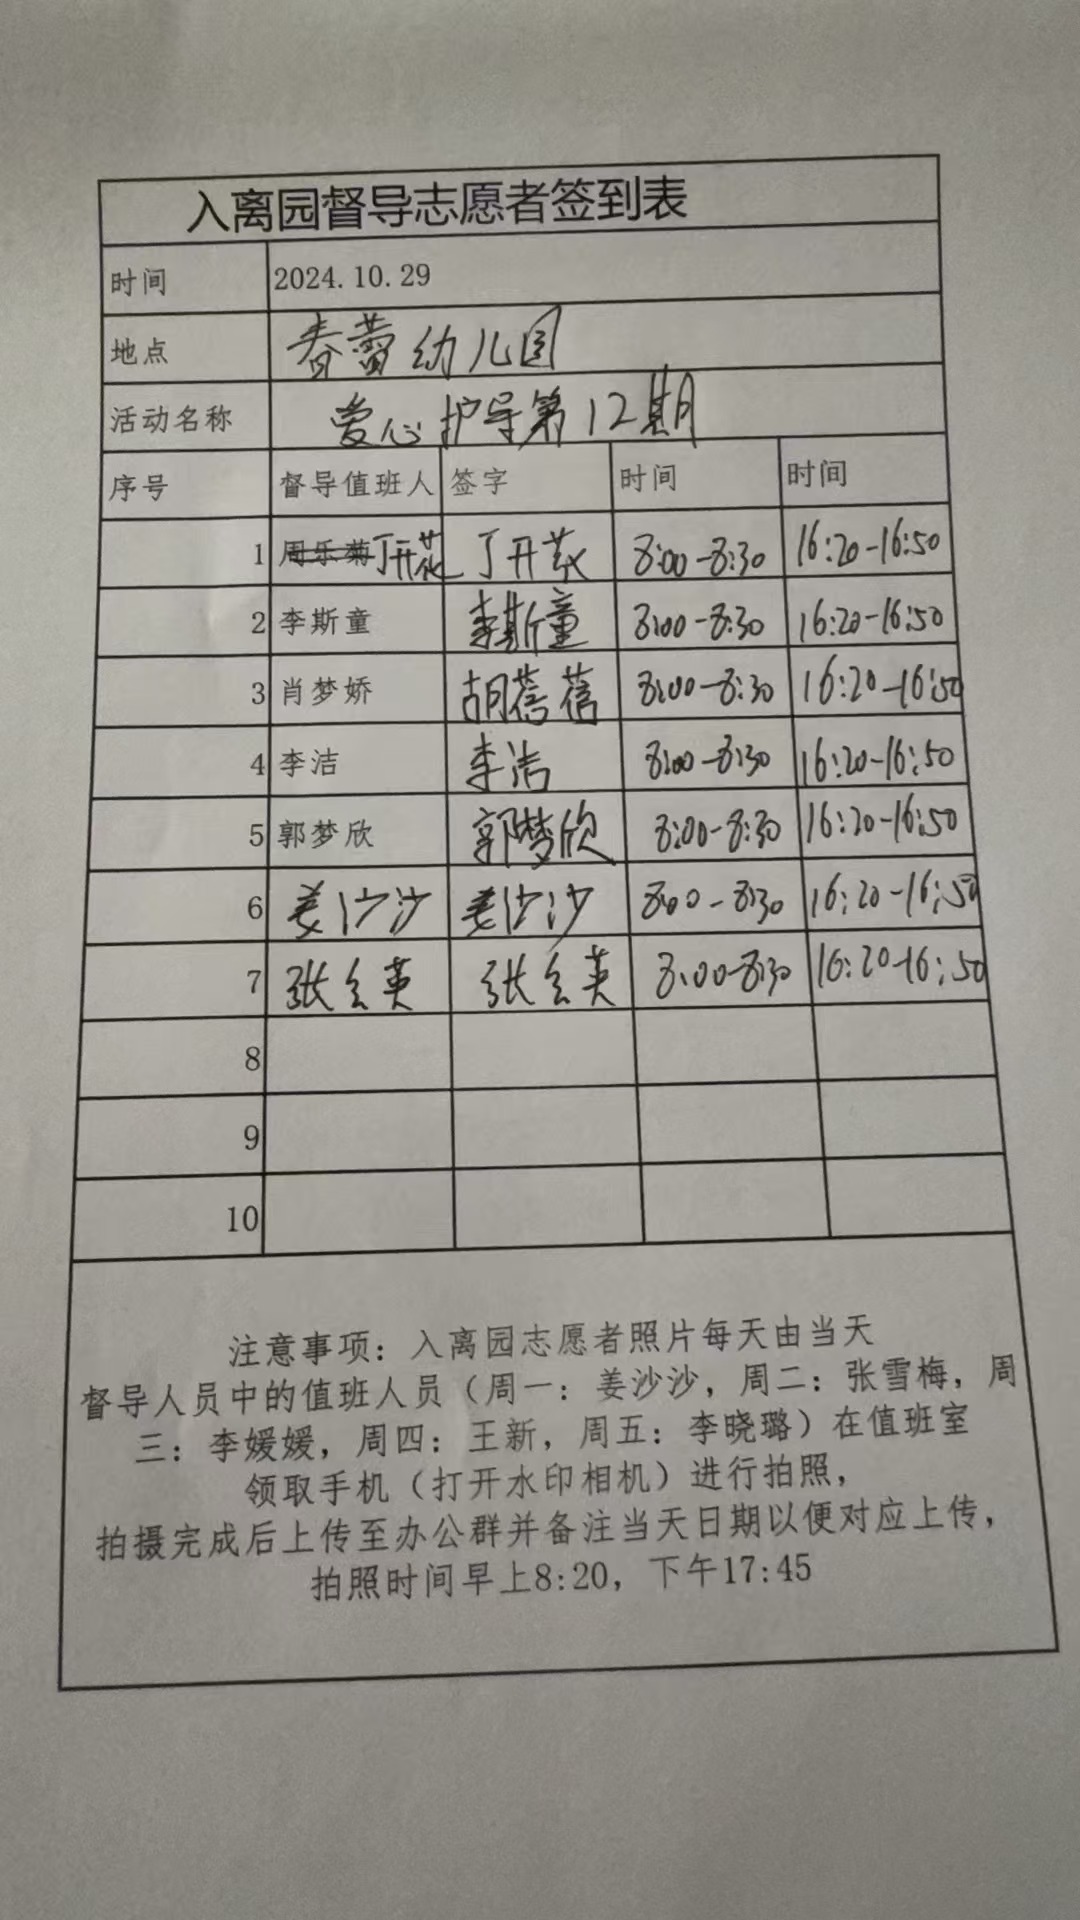 入离园督导志愿者签到表
时间 2024.10.29
地点 春蕾幼儿园
活动名称 爱心护导第12期
序号 督导值班人 签字 时间 时间
1 周乐菊 丁开花 丁开花 8:00-8:30 16:20-16:50
2 李斯童 李斯童 8:00-8:30 16:20-16:50
3 肖梦娇 胡蓓蓓 8:00-8:30 16:20-16:50
4 李洁 李洁 8:00-8:30 16:20-16:50
5 郭梦欣 郭梦欣 8:00-8:30 16:20-16:50
6 姜沙沙 姜沙沙 8:00-8:30 16:20-16:50
7 张会英 张会英 8:00-8:30 16:20-16:50
8
9
10
注意事项：入离园志愿者照片每天由当天
督导人员中的值班人员（周一：姜沙沙，周二：张雪梅，周
三：李媛媛，周四：王新，周五：李晓璐）在值班室
领取手机（打开水印相机）进行拍照，
拍摄完成后上传至办公群并备注当天日期以便对应上传，
拍照时间早上8:20，下午17:45